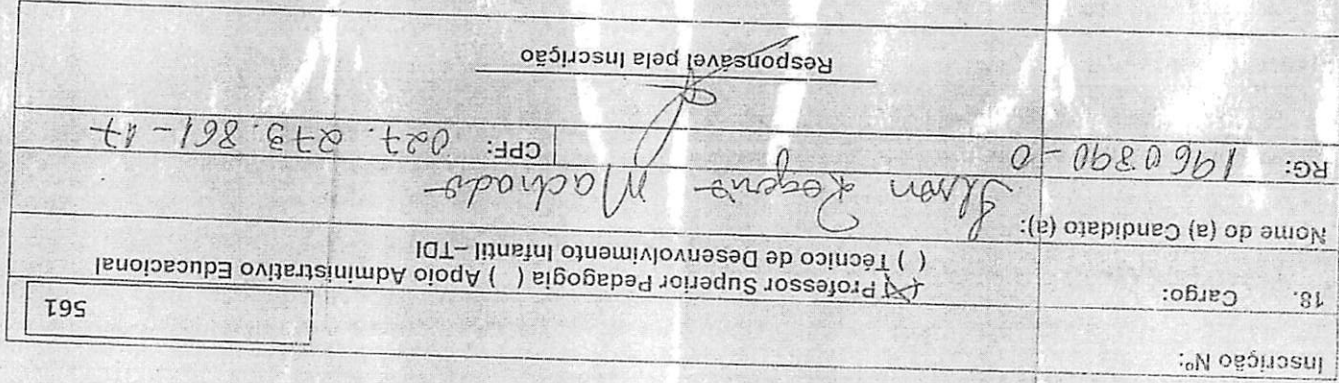 Inscrição Nº:
561
18. Cargo: (X) Professor Superior Pedagogia ( ) Apoio Administrativo Educacional
( ) Técnico de Desenvolvimento Infantil – TDI
Nome do (a) Candidato (a): Machado
RG: 1960890-0 CPF: 027.273.861-17
Responsável pela Inscrição